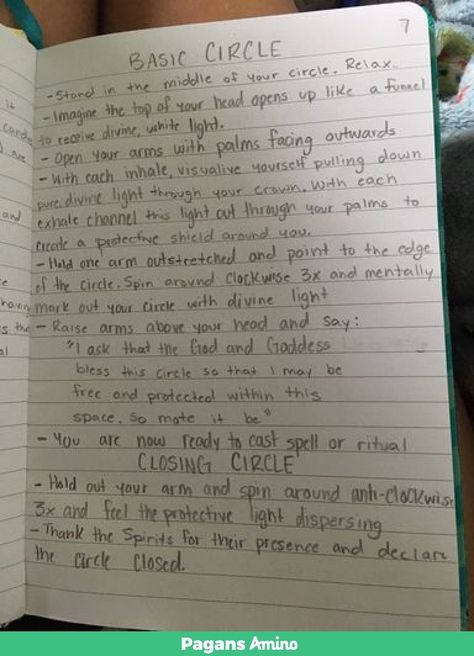 7
BASIC CIRCLE
- Stand in the middle of your circle. Relax.
- Imagine the top of your head opens up like a funnel
to receive divine, white light.
- Open your arms with palms facing outwards
- With each inhale, visualive yourself pulling down
pure, divine light through your crown. With each
exhale channel this light out through your palms to
create a protective shield around you.
- Hold one arm outstretched and point to the edge
of the circle. Spin around clockwise 3x and mentally
mark out your circle with divine light
- Raise arms above your head and say:
"I ask that the God and Goddess
bless this circle so that I may be
free and protected within this
space. So mote it be"
- You are now ready to cast spell or ritual
CLOSING CIRCLE
- Hold out your arm and spin around anti-clockwise
3x and feel the protective light dispersing
- Thank the Spirits for their presence and declare
the circle closed.
Pagans Amino